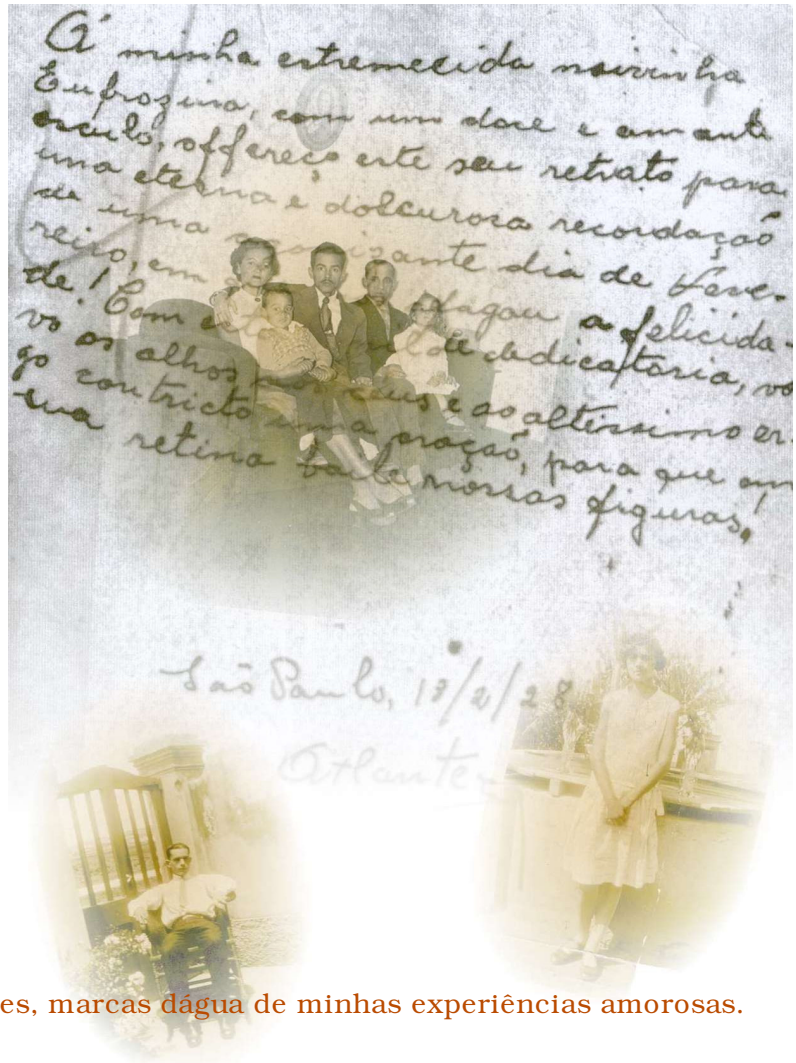 Á minha estremecida noivinha
Eufrozina, com um doce e amante
osculo, offereço este seu retrato para
uma eterna e dolcurosa recordação
de uma dia de Feve-
reiro, em a felicida-
de! Com dedicatoria, vo
vo os olhos aos céus e ao altissimo er-
go contricto uma oração, para que em
sua retina baile nossas figuras!
São Paulo, 13/2/28
Atlante
es, marcas dágua de minhas experiências amorosas.